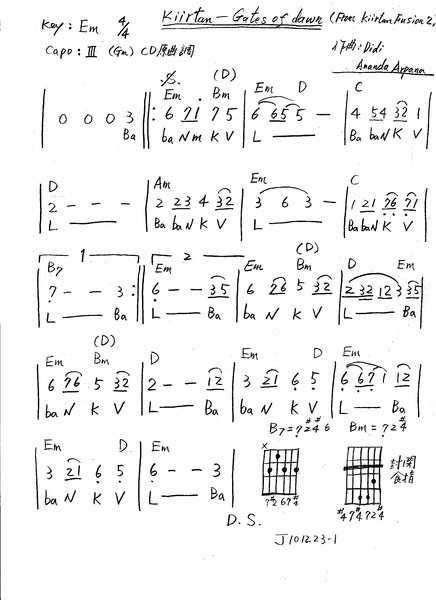 Key: Em 4/4 Kiirtan - Gates of dawn (From Kiirtan Fusion 2)
Capo: III (Gm) CD原曲調 作曲: Didi
Ananda Arpana
𝄋 Em Bm (D) Em D C
0 0 0 3 6 71 7 5 6 65 5 - 4 54 32 1
Ba ba N m K V L Ba baN K V
D Am Em C
2 - - - 2 23 4 32 3 6 3 - 1 21 76 71
L Ba baN K V L Ba baN K V
1 2 (D)
B7 Em Em Bm D Em
7 - - 3 6 - - 35 6 76 5 32 2 32 12 3 35
L Ba L Ba ba N K V L Ba
(D)
Em Bm D Em D Em
6 76 5 32 2 - - 12 3 21 6 5 6 671 12
ba N K V L Ba ba N K V L Ba
B7 = 7 2# 4# 6 Bm = 7 2 4#
Em D Em
3 21 6 5 6 - - 3
ba N K V L Ba
x 封閉
食指
7 2# 6 7 4# #4 7 #4 7 2 4#
D.S.
J101223-1